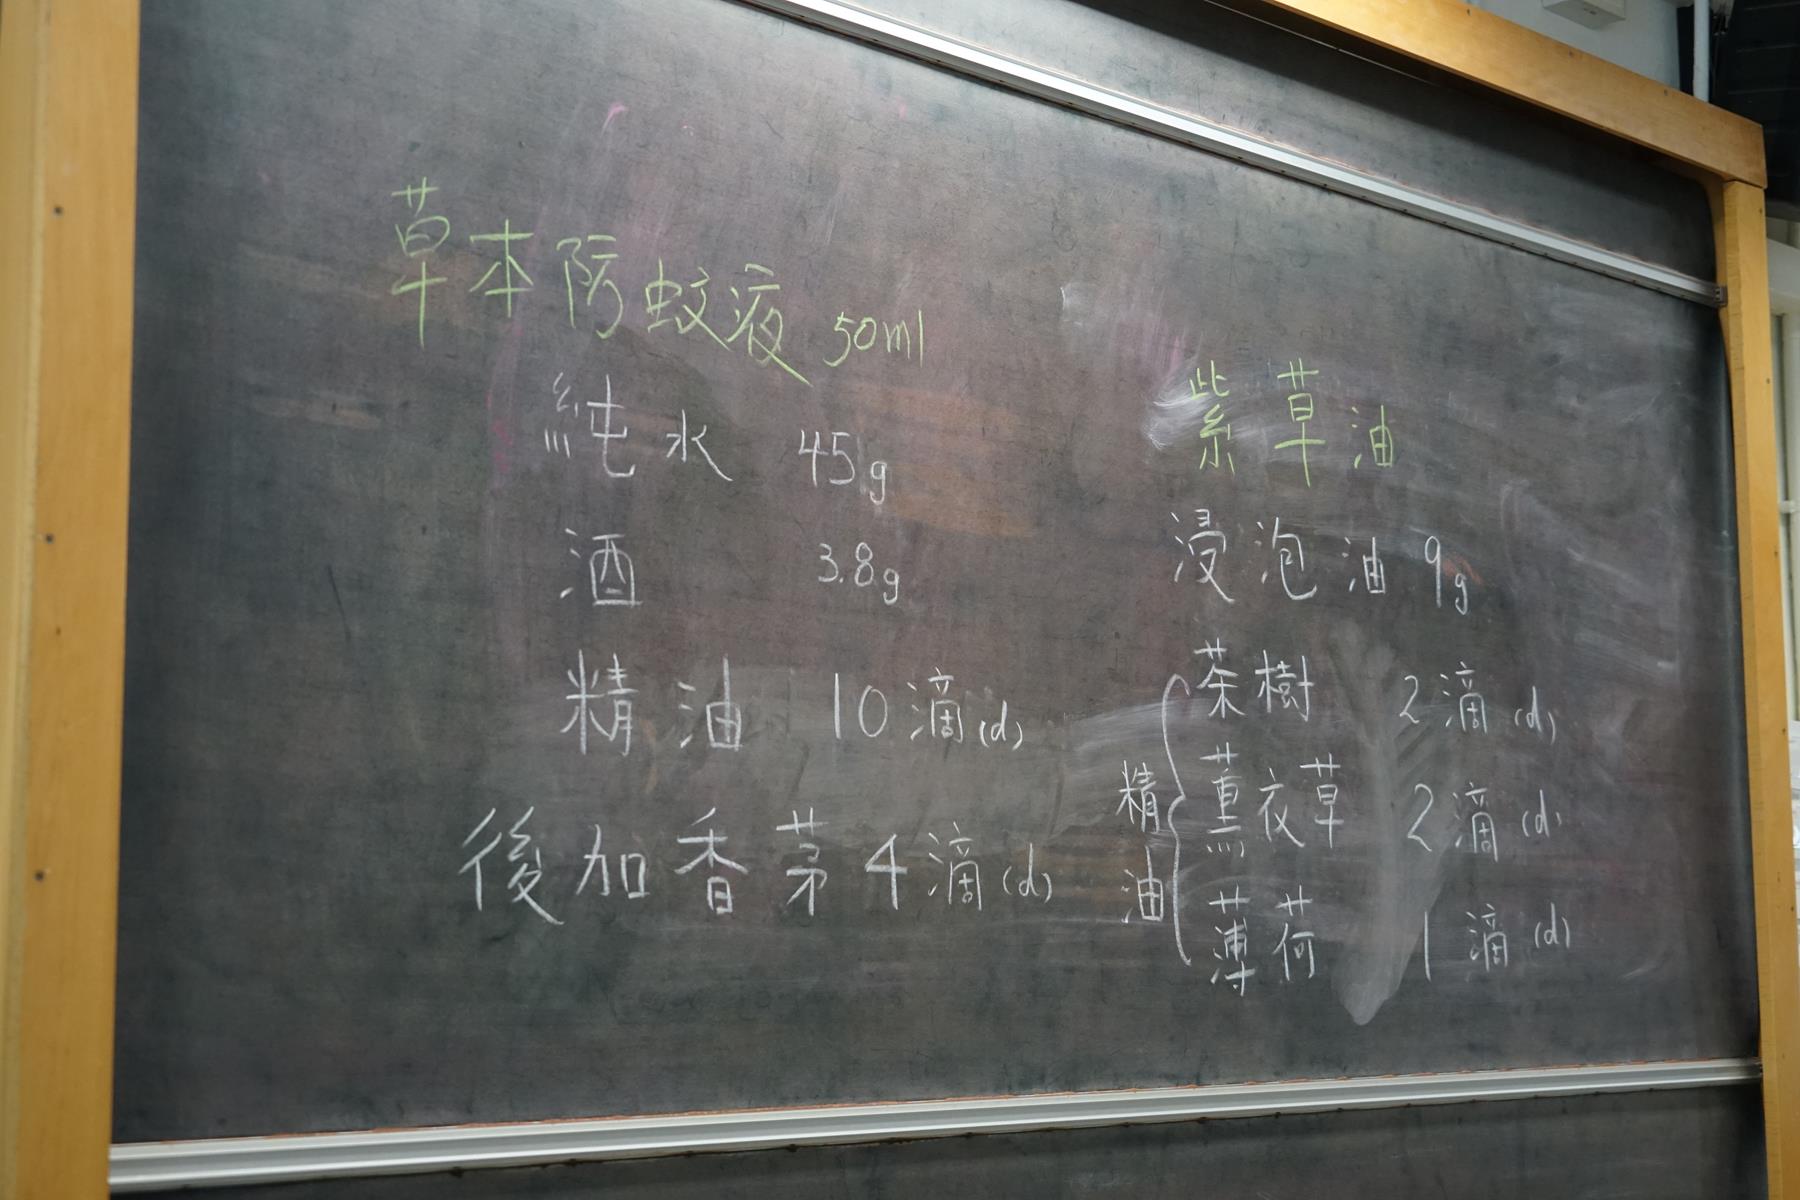 草本防蚊液 50ml
純水 45g
酒 3.8g
精油 10滴(d)
後加香茅4滴(d)
紫草油
浸泡油 9g
精油
茶樹 2滴(d)
薰衣草 2滴(d)
薄荷 1滴(d)